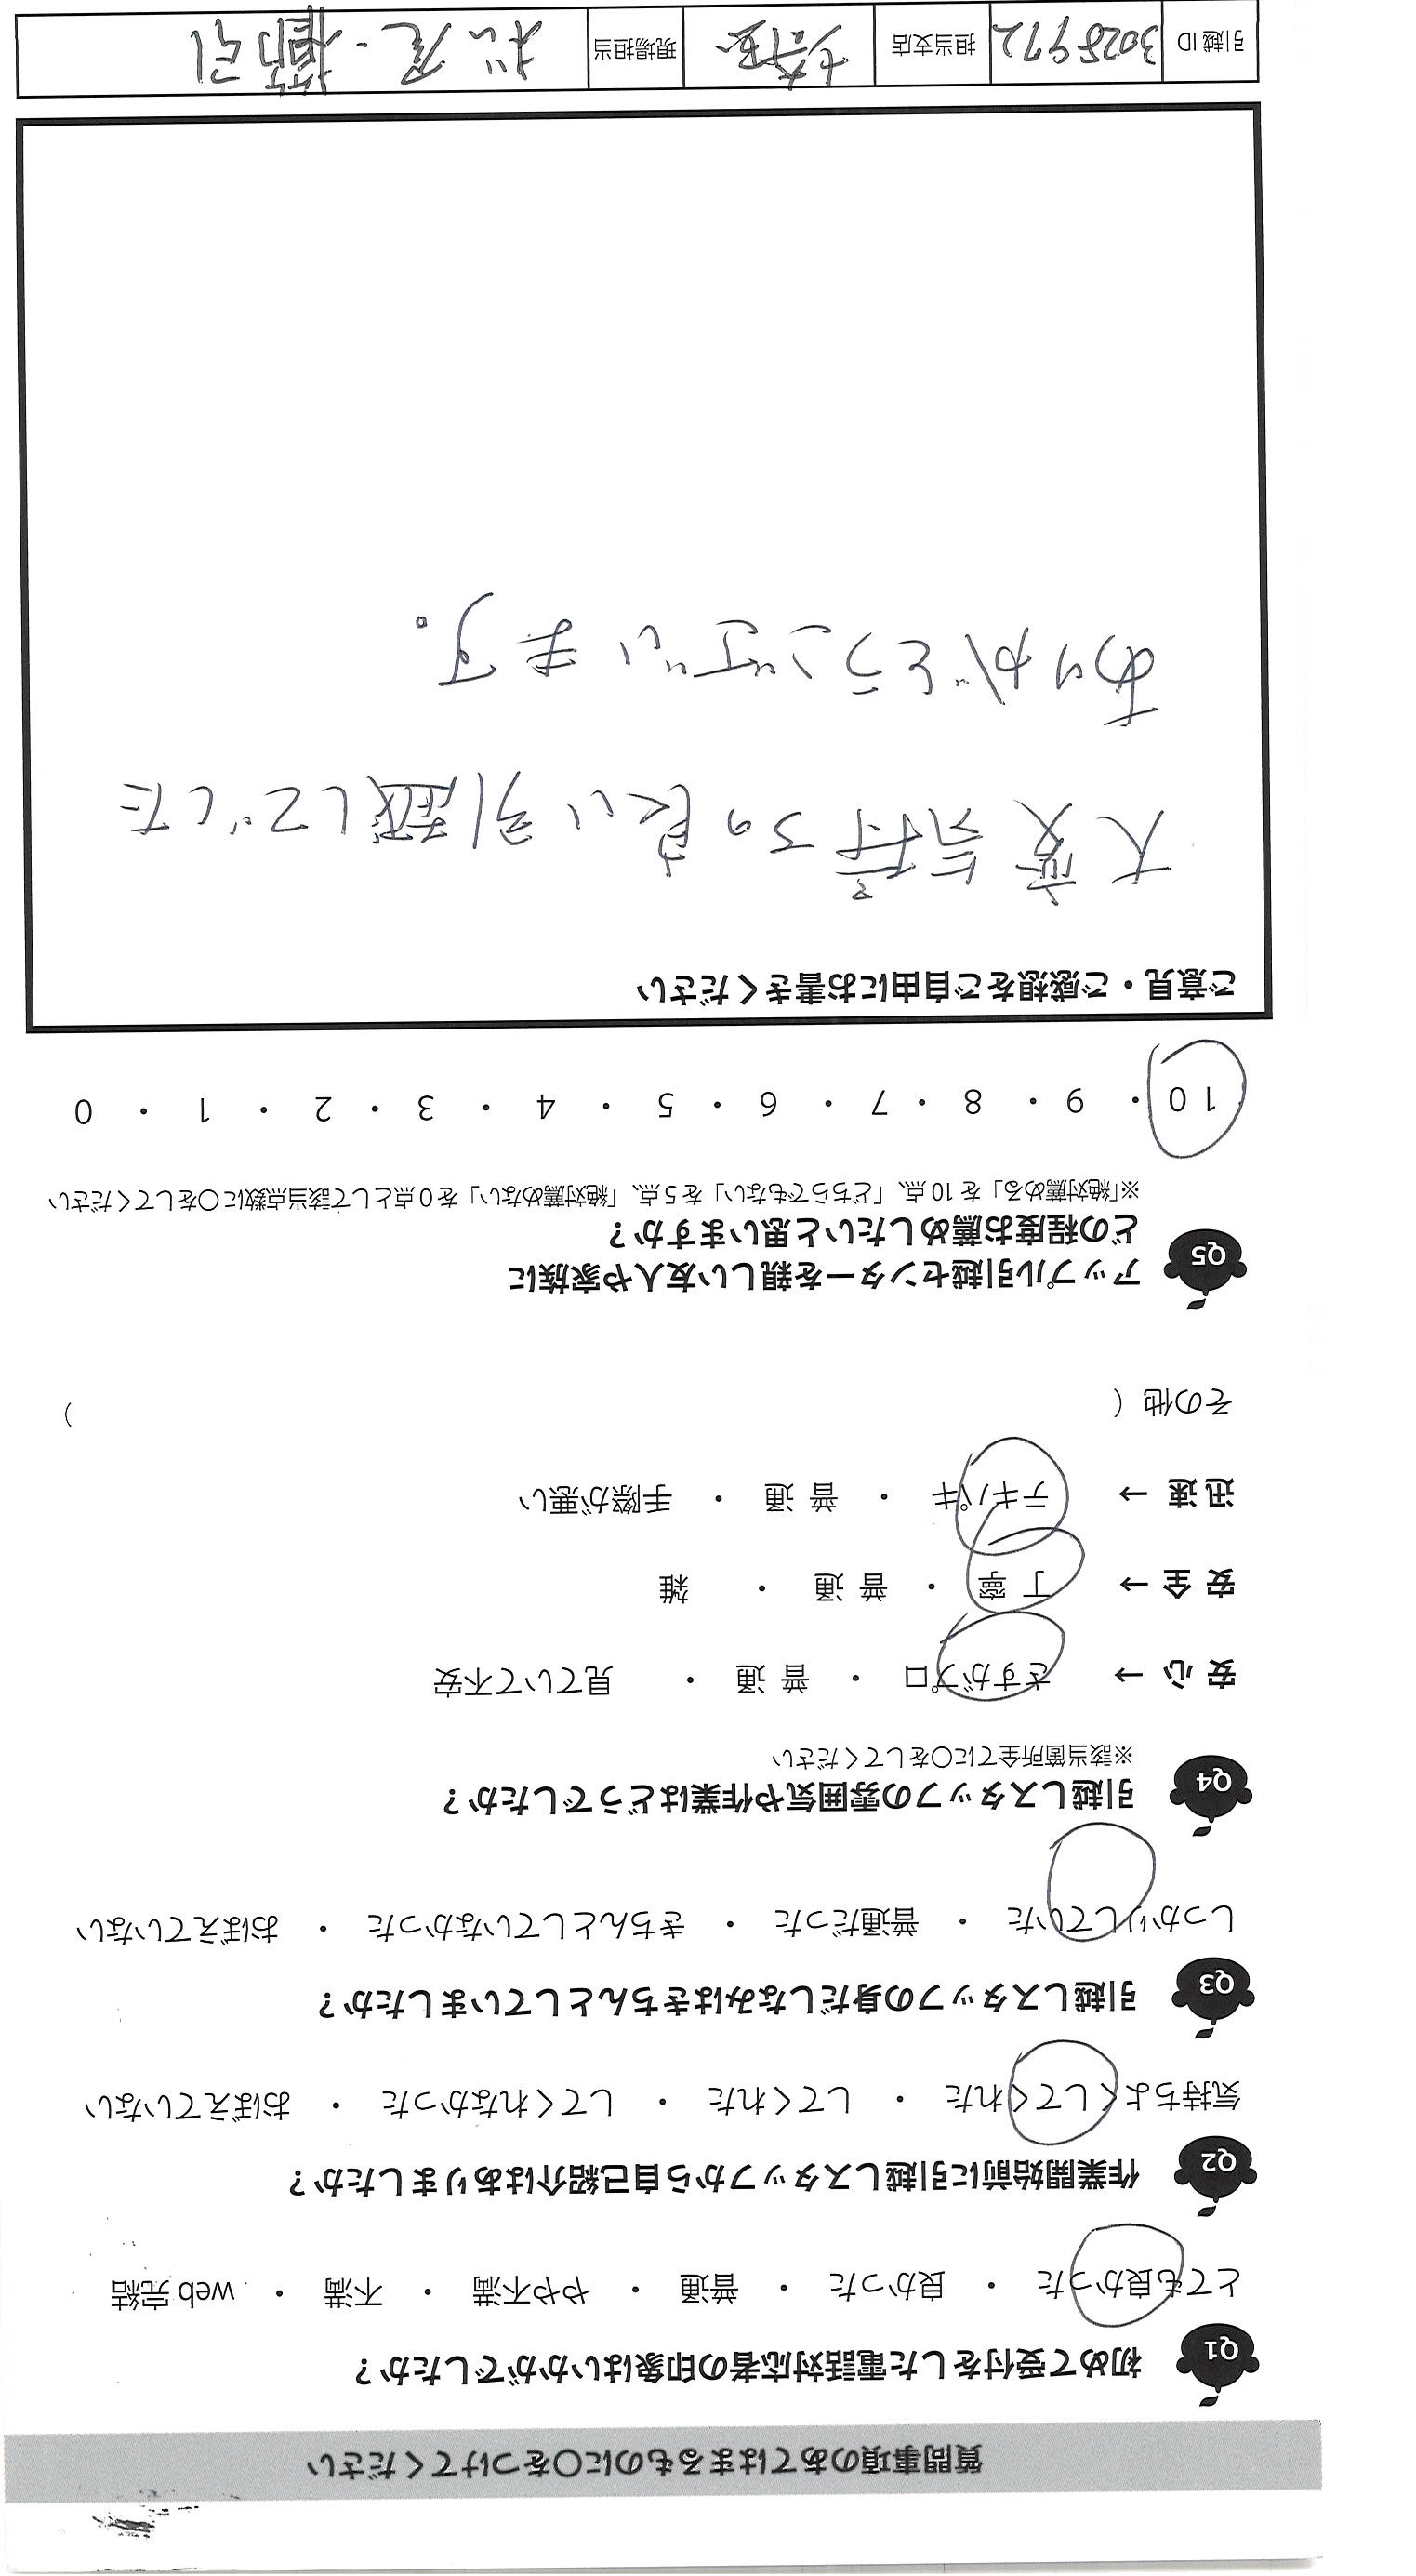 質問事項のあてはまるものに〇をつけてください
Q1 初めて受付をした電話対応者の印象はいかがでしたか？
とても良かった ・ 良かった ・ 普通 ・ やや不満 ・ 不満 ・ web 完結
Q2 作業開始前に引越しスタッフから自己紹介はありましたか？
気持ちよくしてくれた ・ してくれた ・ してくれなかった ・ おぼえていない
Q3 引越しスタッフの身だしなみはきちんとしていましたか？
しっかりしていた ・ 普通だった ・ きちんとしていなかった ・ おぼえていない
Q4 引越しスタッフの雰囲気や作業はどうでしたか？
※該当箇所全てに〇をしてください
安 心 → さすがプロ ・ 普 通 ・ 見ていて不安
安 全 → 丁 寧 ・ 普 通 ・ 雑
迅 速 → テキパキ ・ 普 通 ・ 手際が悪い
その他（ ）
Q5 アップル引越センターを親しい友人や家族に
どの程度お薦めしたいと思いますか？
※「絶対薦める」を 10 点、「どちらでもない」を 5 点、「絶対薦めない」を 0 点として該当点数に〇をしてください
10 ・ 9 ・ 8 ・ 7 ・ 6 ・ 5 ・ 4 ・ 3 ・ 2 ・ 1 ・ 0
ご意見・ご感想をご自由にお書きください
大変気持ちの良い引越しでした
ありがとうございます。
引越 ID 3028972 担当支店 埼玉 現場担当 松尾・櫛引